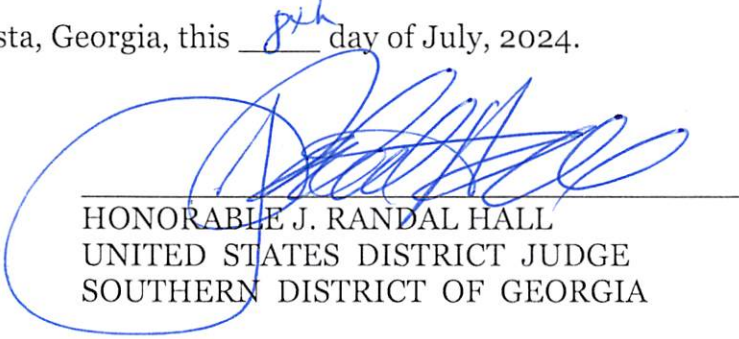 sta, Georgia, this 8th day of July, 2024.
HONORABLE J. RANDAL HALL
UNITED STATES DISTRICT JUDGE
SOUTHERN DISTRICT OF GEORGIA